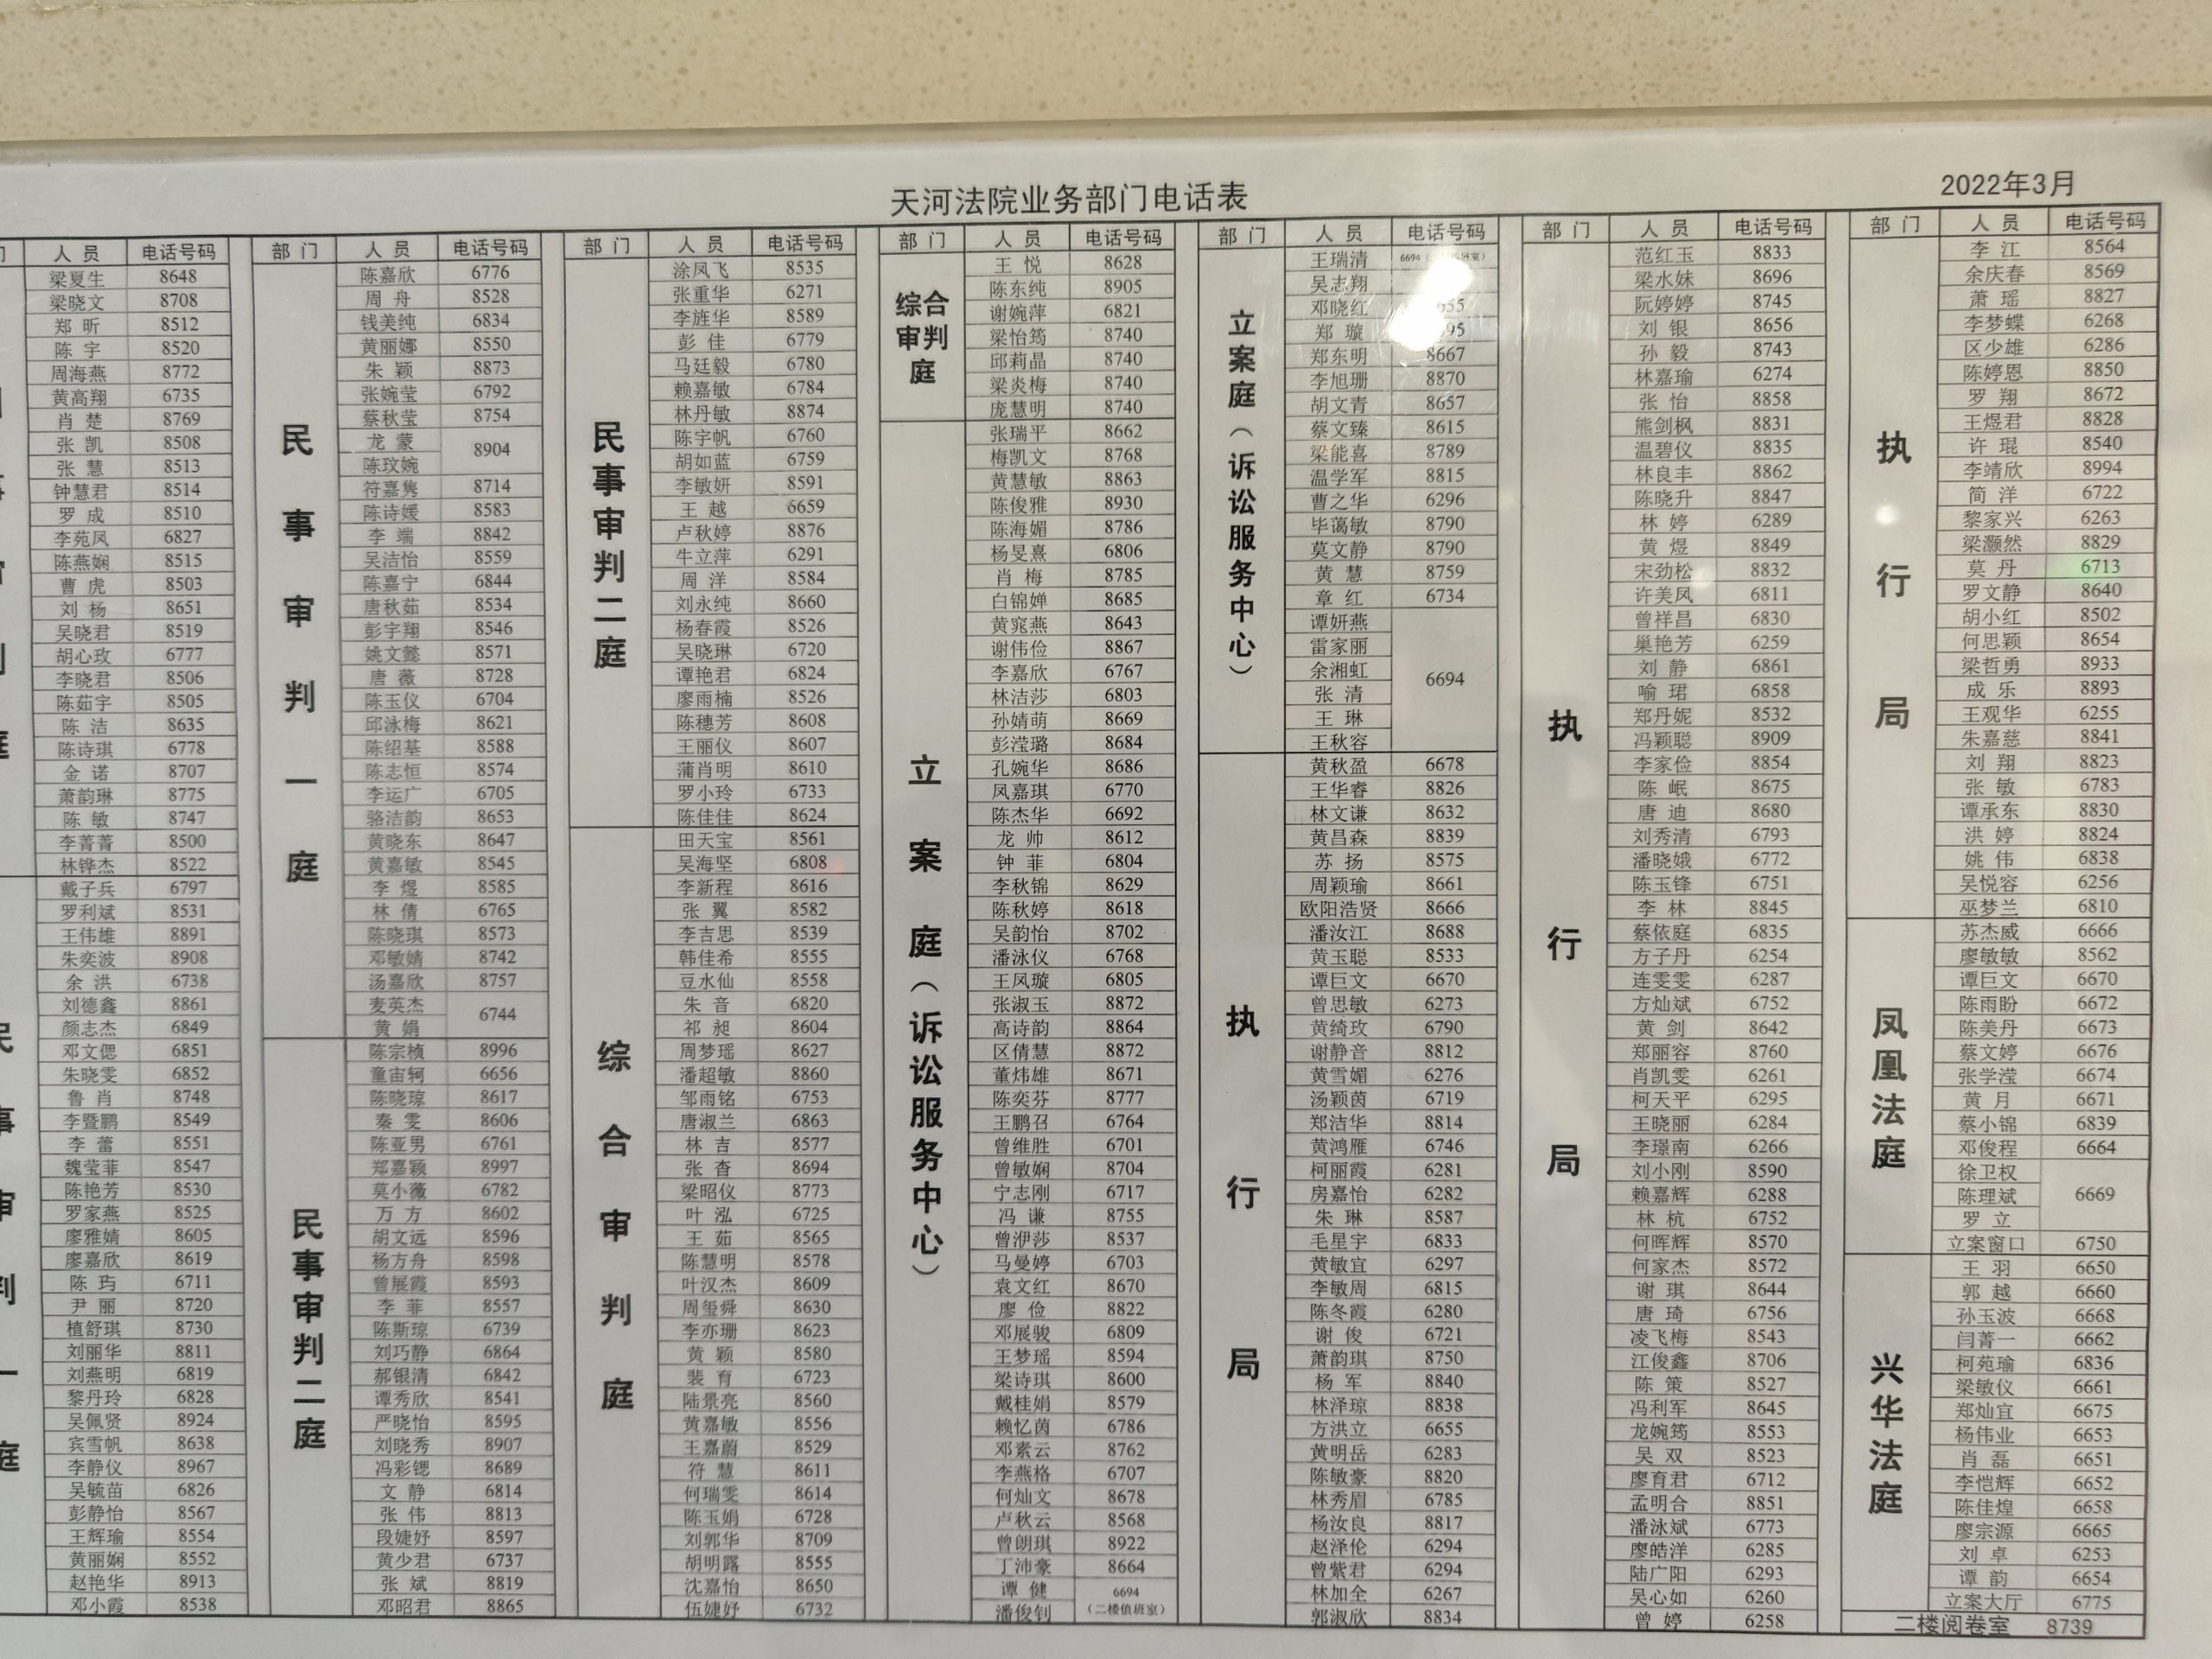 天河法院业务部门电话表
2022年3月
人 员 电话号码
梁夏生 8648
梁晓文 8708
郑 昕 8512
陈 宇 8520
周海燕 8772
黄高翔 6735
肖 楚 8769
张 凯 8508
张 慧 8513
钟慧君 8514
罗 成 8510
李苑凤 6827
陈燕娴 8515
曹 虎 8503
刘 杨 8651
吴晓君 8519
胡心玫 6777
李晓君 8506
陈茹宇 8505
陈 洁 8635
陈诗琪 6778
金 诺 8707
萧韵琳 8775
陈 敏 8747
李菁菁 8500
林铧杰 8522
戴子兵 6797
罗利斌 8531
王伟雄 8891
朱奕波 8908
余 洪 6738
刘德鑫 8861
颜志杰 6849
邓文偲 6851
朱晓雯 6852
鲁 肖 8748
李暨鹏 8549
李 蕾 8551
魏莹菲 8547
陈艳芳 8530
罗家燕 8525
廖雅婧 8605
廖嘉欣 8619
陈 玙 6711
尹 丽 8720
植舒琪 8730
刘丽华 8811
刘燕明 6819
黎丹玲 6828
吴佩贤 8924
宾雪帆 8638
李静仪 8967
吴毓苗 6826
彭静怡 8567
王辉瑜 8554
黄丽娴 8552
赵艳华 8913
邓小霞 8538
部 门 人 员 电话号码
民事审判一庭
陈嘉欣 6776
周 舟 8528
钱美纯 6834
黄丽娜 8550
朱 颖 8873
张婉莹 6792
蔡秋莹 8754
龙 蒙 8904
陈玟婉
符嘉隽 8714
陈诗媛 8583
李 端 8842
吴洁怡 8559
陈嘉宁 6844
唐秋茹 8534
彭宇翔 8546
姚文懿 8571
唐 薇 8728
陈玉仪 6704
邱泳梅 8621
陈绍基 8588
陈志恒 8574
李运广 6705
骆洁韵 8653
黄晓东 8647
黄嘉敏 8545
李 煜 8585
林 倩 6765
陈晓琪 8573
邓敏婧 8742
汤嘉欣 8757
麦英杰 6744
黄 娟
民事审判二庭
陈宗桢 8996
童宙轲 6656
陈晓琼 8617
秦 雯 8606
陈亚男 6761
郑嘉颖 8997
莫小薇 6782
万 方 8602
胡文远 8596
杨方舟 8598
曾展霞 8593
李 菲 8557
陈斯琼 6739
刘巧静 6864
郝银清 6842
谭秀欣 8541
严晓怡 8595
刘晓秀 8907
冯彩锶 8689
文 静 6814
张 伟 8813
段婕妤 8597
黄少君 6737
张 斌 8819
邓昭君 8865
部 门 人 员 电话号码
民事审判二庭
涂凤飞 8535
张重华 6271
李旌华 8589
彭 佳 6779
马廷毅 6780
赖嘉敏 6784
林丹敏 8874
陈宇帆 6760
胡如蓝 6759
李敏妍 8591
王 越 6659
卢秋婷 8876
牛立萍 6291
周 洋 8584
刘永纯 8660
杨春霞 8526
吴晓琳 6720
谭艳君 6824
廖雨楠 8526
陈穗芳 8608
王丽仪 8607
蒲肖明 8610
罗小玲 6733
陈佳佳 8624
综合审判庭
田天宝 8561
吴海坚 6808
李新程 8616
张 翼 8582
李吉思 8539
韩佳希 8555
豆水仙 8558
朱 音 6820
祁 昶 8604
周梦瑶 8627
潘超敏 8860
邹雨铭 6753
唐淑兰 6863
林 吉 8577
张 杳 8694
梁昭仪 8773
叶 泓 6725
王 茹 8565
陈慧明 8578
叶汉杰 8609
周玺舜 8630
李亦珊 8623
黄 颖 8580
裴 育 6723
陆景亮 8560
黄嘉敏 8556
王嘉蔚 8529
符 慧 8611
何瑞雯 8614
陈玉娟 6728
刘郭华 8709
胡明露 8555
沈嘉怡 8650
伍婕妤 6732
部 门 人 员 电话号码
综合审判庭
王 悦 8628
陈东纯 8905
谢婉萍 6821
梁怡筠 8740
邱莉晶 8740
梁炎梅 8740
庞慧明 8740
立案庭（诉讼服务中心）
张瑞平 8662
梅凯文 8768
黄慧敏 8863
陈俊雅 8930
陈海媚 8786
杨旻熹 6806
肖 梅 8785
白锦婵 8685
黄窕燕 8643
谢伟俭 8867
李嘉欣 6767
林洁莎 6803
孙婧萌 8669
彭滢璐 8684
孔婉华 8686
凤嘉琪 6770
陈杰华 6692
龙 帅 8612
钟 菲 6804
李秋锦 8629
陈秋婷 8618
吴韵怡 8702
潘泳仪 6768
王凤璇 6805
张淑玉 8872
高诗韵 8864
区倩慧 8872
董炜雄 8671
陈奕芬 8777
王鹏召 6764
曾维胜 6701
曾敏娴 8704
宁志刚 6717
冯 谦 8755
曾洢莎 8537
马曼婷 6703
袁文红 8670
廖 俭 8822
邓展骏 6809
王梦瑶 8594
梁诗琪 8600
戴桂娟 8579
赖忆茵 6786
邓素云 8762
李燕格 6707
何灿文 8678
卢秋云 8568
曾朗琪 8922
丁沛豪 8664
谭 健 6694
潘俊钊 （二楼值班室）
部 门 人 员 电话号码
立案庭（诉讼服务中心）
王瑞清 6694
吴志翔
邓晓红
郑 璇
郑东明 8667
李旭珊 8870
胡文青 8657
蔡文臻 8615
梁能喜 8789
温学军 8815
曹之华 6296
毕蔼敏 8790
莫文静 8790
黄 慧 8759
章 红 6734
谭妍燕
雷家丽
余湘虹 6694
张 清
王 琳
王秋容
执行局
黄秋盈 6678
王华睿 8826
林文谦 8632
黄昌森 8839
苏 扬 8575
周颖瑜 8661
欧阳浩贤 8666
潘汝江 8688
黄玉聪 8533
谭巨文 6670
曾思敏 6273
黄绮玫 6790
谢静音 8812
黄雪媚 6276
汤颖茵 6719
郑洁华 8814
黄鸿雁 6746
柯丽霞 6281
房嘉怡 6282
朱 琳 8587
毛星宇 6833
黄敏宜 6297
李敏周 6815
陈冬霞 6280
谢 俊 6721
萧韵琪 8750
杨 军 8840
林泽琼 8838
方洪立 6655
黄明岳 6283
陈敏豪 8820
林秀眉 6785
杨汝良 8817
赵泽伦 6294
曾紫君 6294
林加全 6267
郭淑欣 8834
部 门 人 员 电话号码
执行局
范红玉 8833
梁水妹 8696
阮婷婷 8745
刘 银 8656
孙 毅 8743
林嘉瑜 6274
张 怡 8858
熊剑枫 8831
温碧仪 8835
林良丰 8862
陈晓升 8847
林 婷 6289
黄 煜 8849
宋劲松 8832
许美凤 6811
曾祥昌 6830
巢艳芳 6259
刘 静 6861
喻 珺 6858
郑丹妮 8532
冯颖聪 8909
李家俭 8854
陈 岷 8675
唐 迪 8680
刘秀清 6793
潘晓娥 6772
陈玉锋 6751
李 林 8845
蔡依庭 6835
方子丹 6254
连雯雯 6287
方灿斌 6752
黄 剑 8642
郑丽容 8760
肖凯雯 6261
柯天平 6295
王晓丽 6284
李璟南 6266
刘小刚 8590
赖嘉辉 6288
林 杭 6752
何晖辉 8570
何家杰 8572
谢 琪 8644
唐 琦 6756
凌飞梅 8543
江俊鑫 8706
陈 策 8527
冯利军 8645
龙婉筠 8553
吴 双 8523
廖育君 6712
孟明合 8851
潘泳斌 6773
廖皓洋 6285
陆广阳 6293
吴心如 6260
曾 婷 6258
部 门 人 员 电话号码
执行局
李 江 8564
余庆春 8569
萧 瑶 8827
李梦蝶 6268
区少雄 6286
陈婷恩 8850
罗 翔 8672
王煜君 8828
许 琨 8540
李靖欣 8994
简 洋 6722
黎家兴 6263
梁灏然 8829
莫 丹 6713
罗文静 8640
胡小红 8502
何思颖 8654
梁哲勇 8933
成 乐 8893
王观华 6255
朱嘉慈 8841
刘 翔 8823
张 敏 6783
谭承东 8830
洪 婷 8824
姚 伟 6838
吴悦容 6256
巫梦兰 6810
凤凰法庭
苏杰威 6666
廖敏敏 8562
谭巨文 6670
陈雨盼 6672
陈美丹 6673
蔡文婷 6676
张学滢 6674
黄 月 6671
蔡小锦 6839
邓俊程 6664
徐卫权
陈理斌 6669
罗 立
立案窗口 6750
兴华法庭
王 羽 6650
郭 越 6660
孙玉波 6668
闫菁一 6662
柯苑瑜 6836
梁敏仪 6661
郑灿宜 6675
杨伟业 6653
肖 磊 6651
李恺辉 6652
陈佳煌 6658
廖宗源 6665
刘 卓 6253
谭 韵 6654
立案大厅 6775
二楼阅卷室 8739